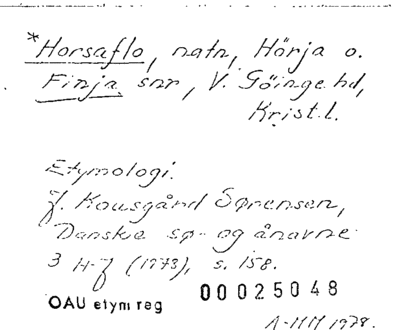 *Horsaflo, natn, Hörja o.
Finja snr, V. Göinge hd,
Krist.l.
Etymologi.
J. Kousgård Sørensen,
Danske sø- og ånavne
3 H-J (1978), s. 158.
OAU etym reg 00025048
A-MM 1979.